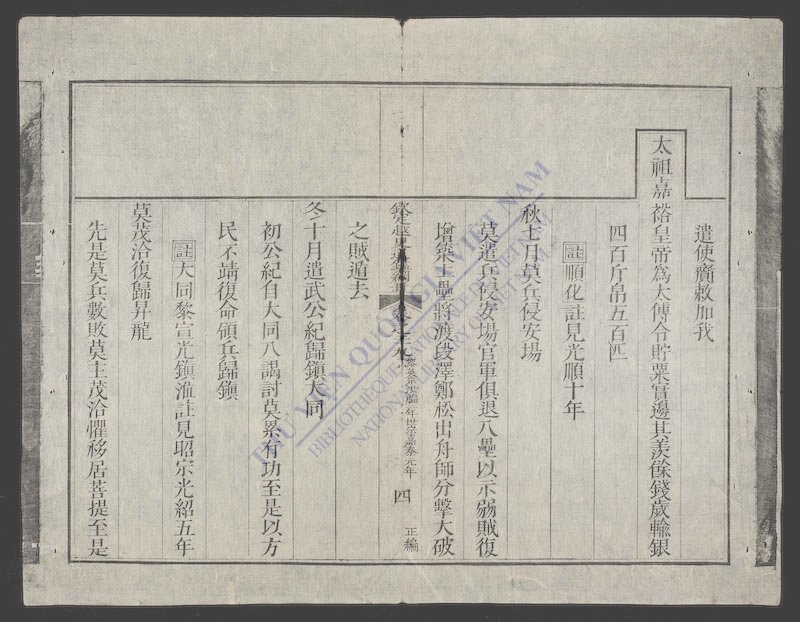 遣使齎敕加我
太祖嘉裕皇帝為太傅令貯粟實邊其羨餘錢歲輸銀
四百斤帛五百匹
註順化註見光順十年
秋七月莫兵侵安場
莫遣兵侵安場官軍俱退入壘以示弱賊復
增築土壘將渡段澤鄭松出舟師分擊大破
欽定越史
年世宗嘉泰元年
四
正編
之賊遁去
冬十月遣武公紀歸鎮大同
初公紀自大同入謁討莫累有功至是以方
民不靖復命領兵歸鎮
註大同黎宣光鎮註見昭宗光紹五年
莫茂洽復歸昇龍
先是莫兵數敗莫主茂洽懼移居菩提至是
THƯ VIỆN QUỐC GIA VIỆT NAM
BIBLIOTHÈQUE NATIONALE DU VIETNAM
NATIONAL LIBRARY OF VIETNAM